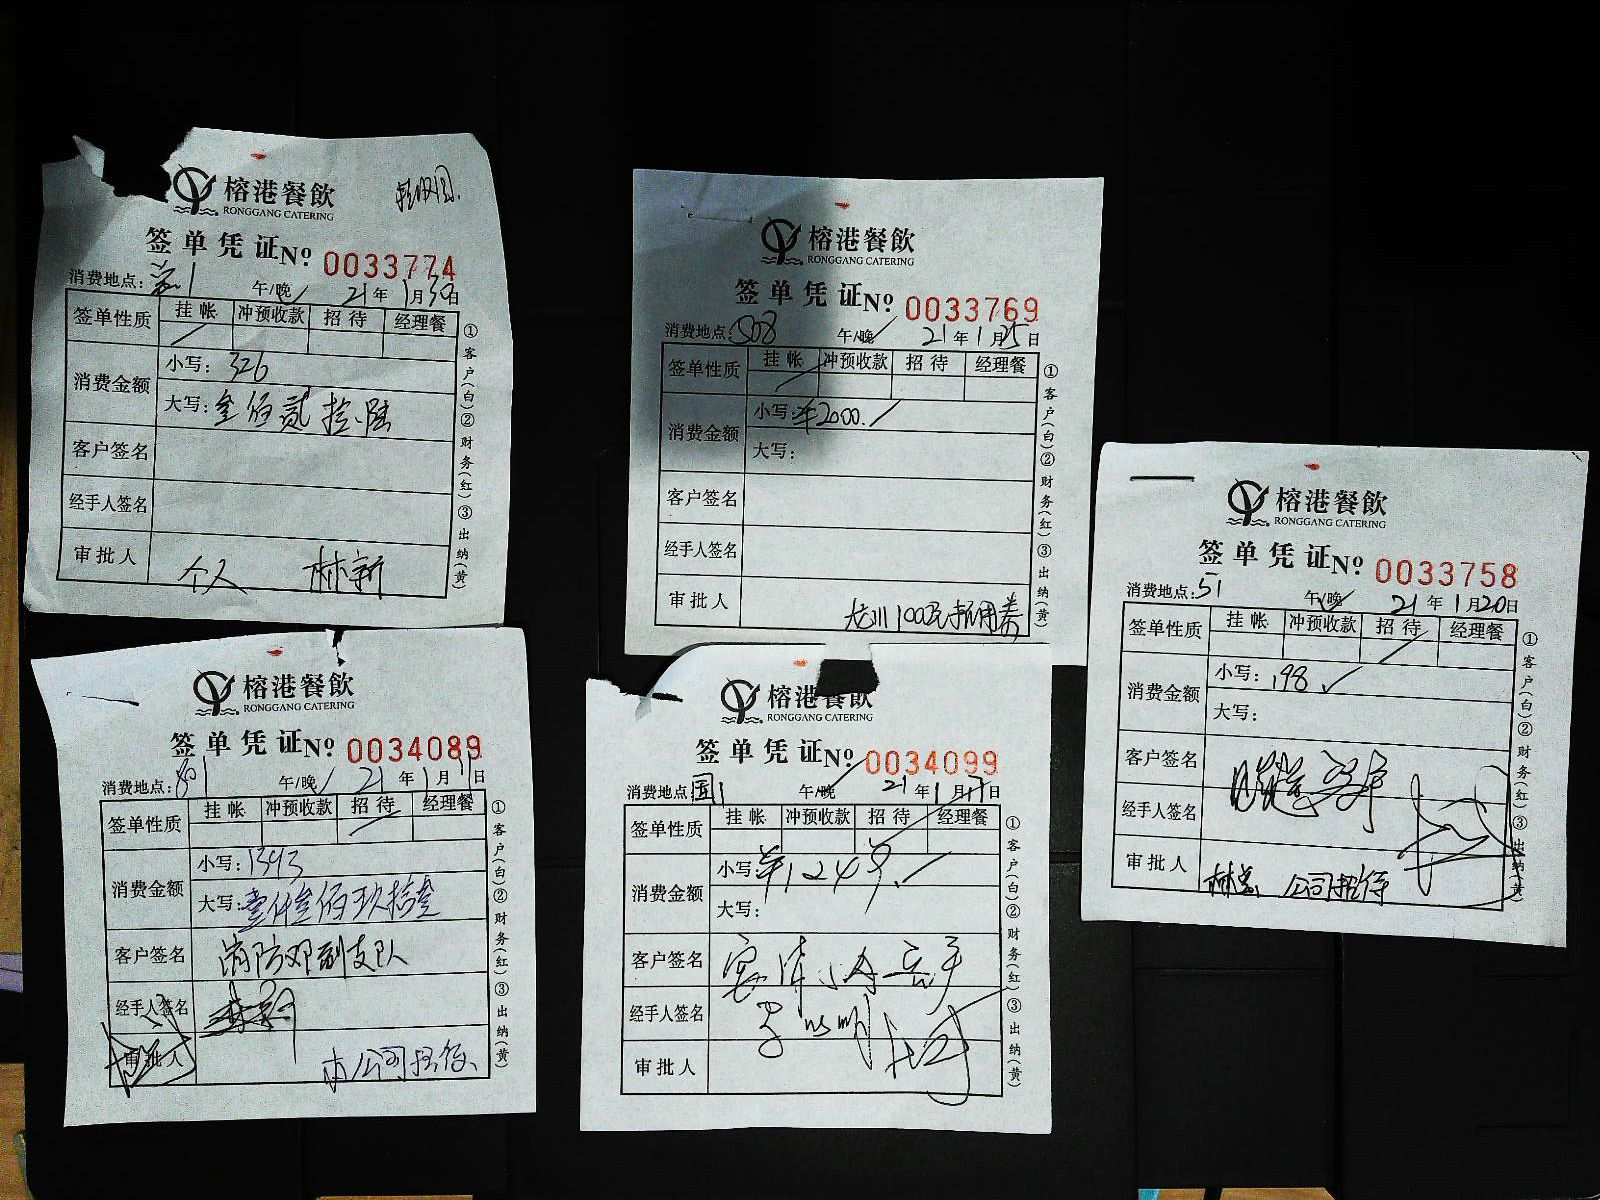 榕港餐飲
RONGGANG CATERING
签单凭证 Nº 0033774
消费地点: 1 午/晚 21年1月30日
签单性质 挂帐 冲预收款 招待 经理餐
消费金额 小写: 326
大写: 叁佰贰拾陆
客户签名
经手人签名
审批人 个人 林新
①客户(白)②财务(红)③出纳(黄)
榕港餐飲
RONGGANG CATERING
签单凭证 Nº 0033769
消费地点: 508 午/晚 21年1月25日
签单性质 挂帐 冲预收款 招待 经理餐
消费金额 小写: ¥2000.
大写:
客户签名
经手人签名
审批人 龙川100元抵用券
①客户(白)②财务(红)③出纳(黄)
榕港餐飲
RONGGANG CATERING
签单凭证 Nº 0033758
消费地点: 51 午/晚 21年1月20日
签单性质 挂帐 冲预收款 招待 经理餐
消费金额 小写: 198
大写:
客户签名
经手人签名
审批人 林总 公司招待
①客户(白)②财务(红)③出纳(黄)
榕港餐飲
RONGGANG CATERING
签单凭证 Nº 0034089
消费地点: 午/晚 21年1月11日
签单性质 挂帐 冲预收款 招待 经理餐
消费金额 小写: 1393
大写: 壹仟叁佰玖拾叁
客户签名 消防邓副支队
经手人签名
审批人 公司招待
①客户(白)②财务(红)③出纳(黄)
榕港餐飲
RONGGANG CATERING
签单凭证 Nº 0034099
消费地点: 国1 午/晚 21年1月17日
签单性质 挂帐 冲预收款 招待 经理餐
消费金额 小写:
大写:
客户签名 宴请
经手人签名
审批人
①客户(白)②财务(红)③出纳(黄)